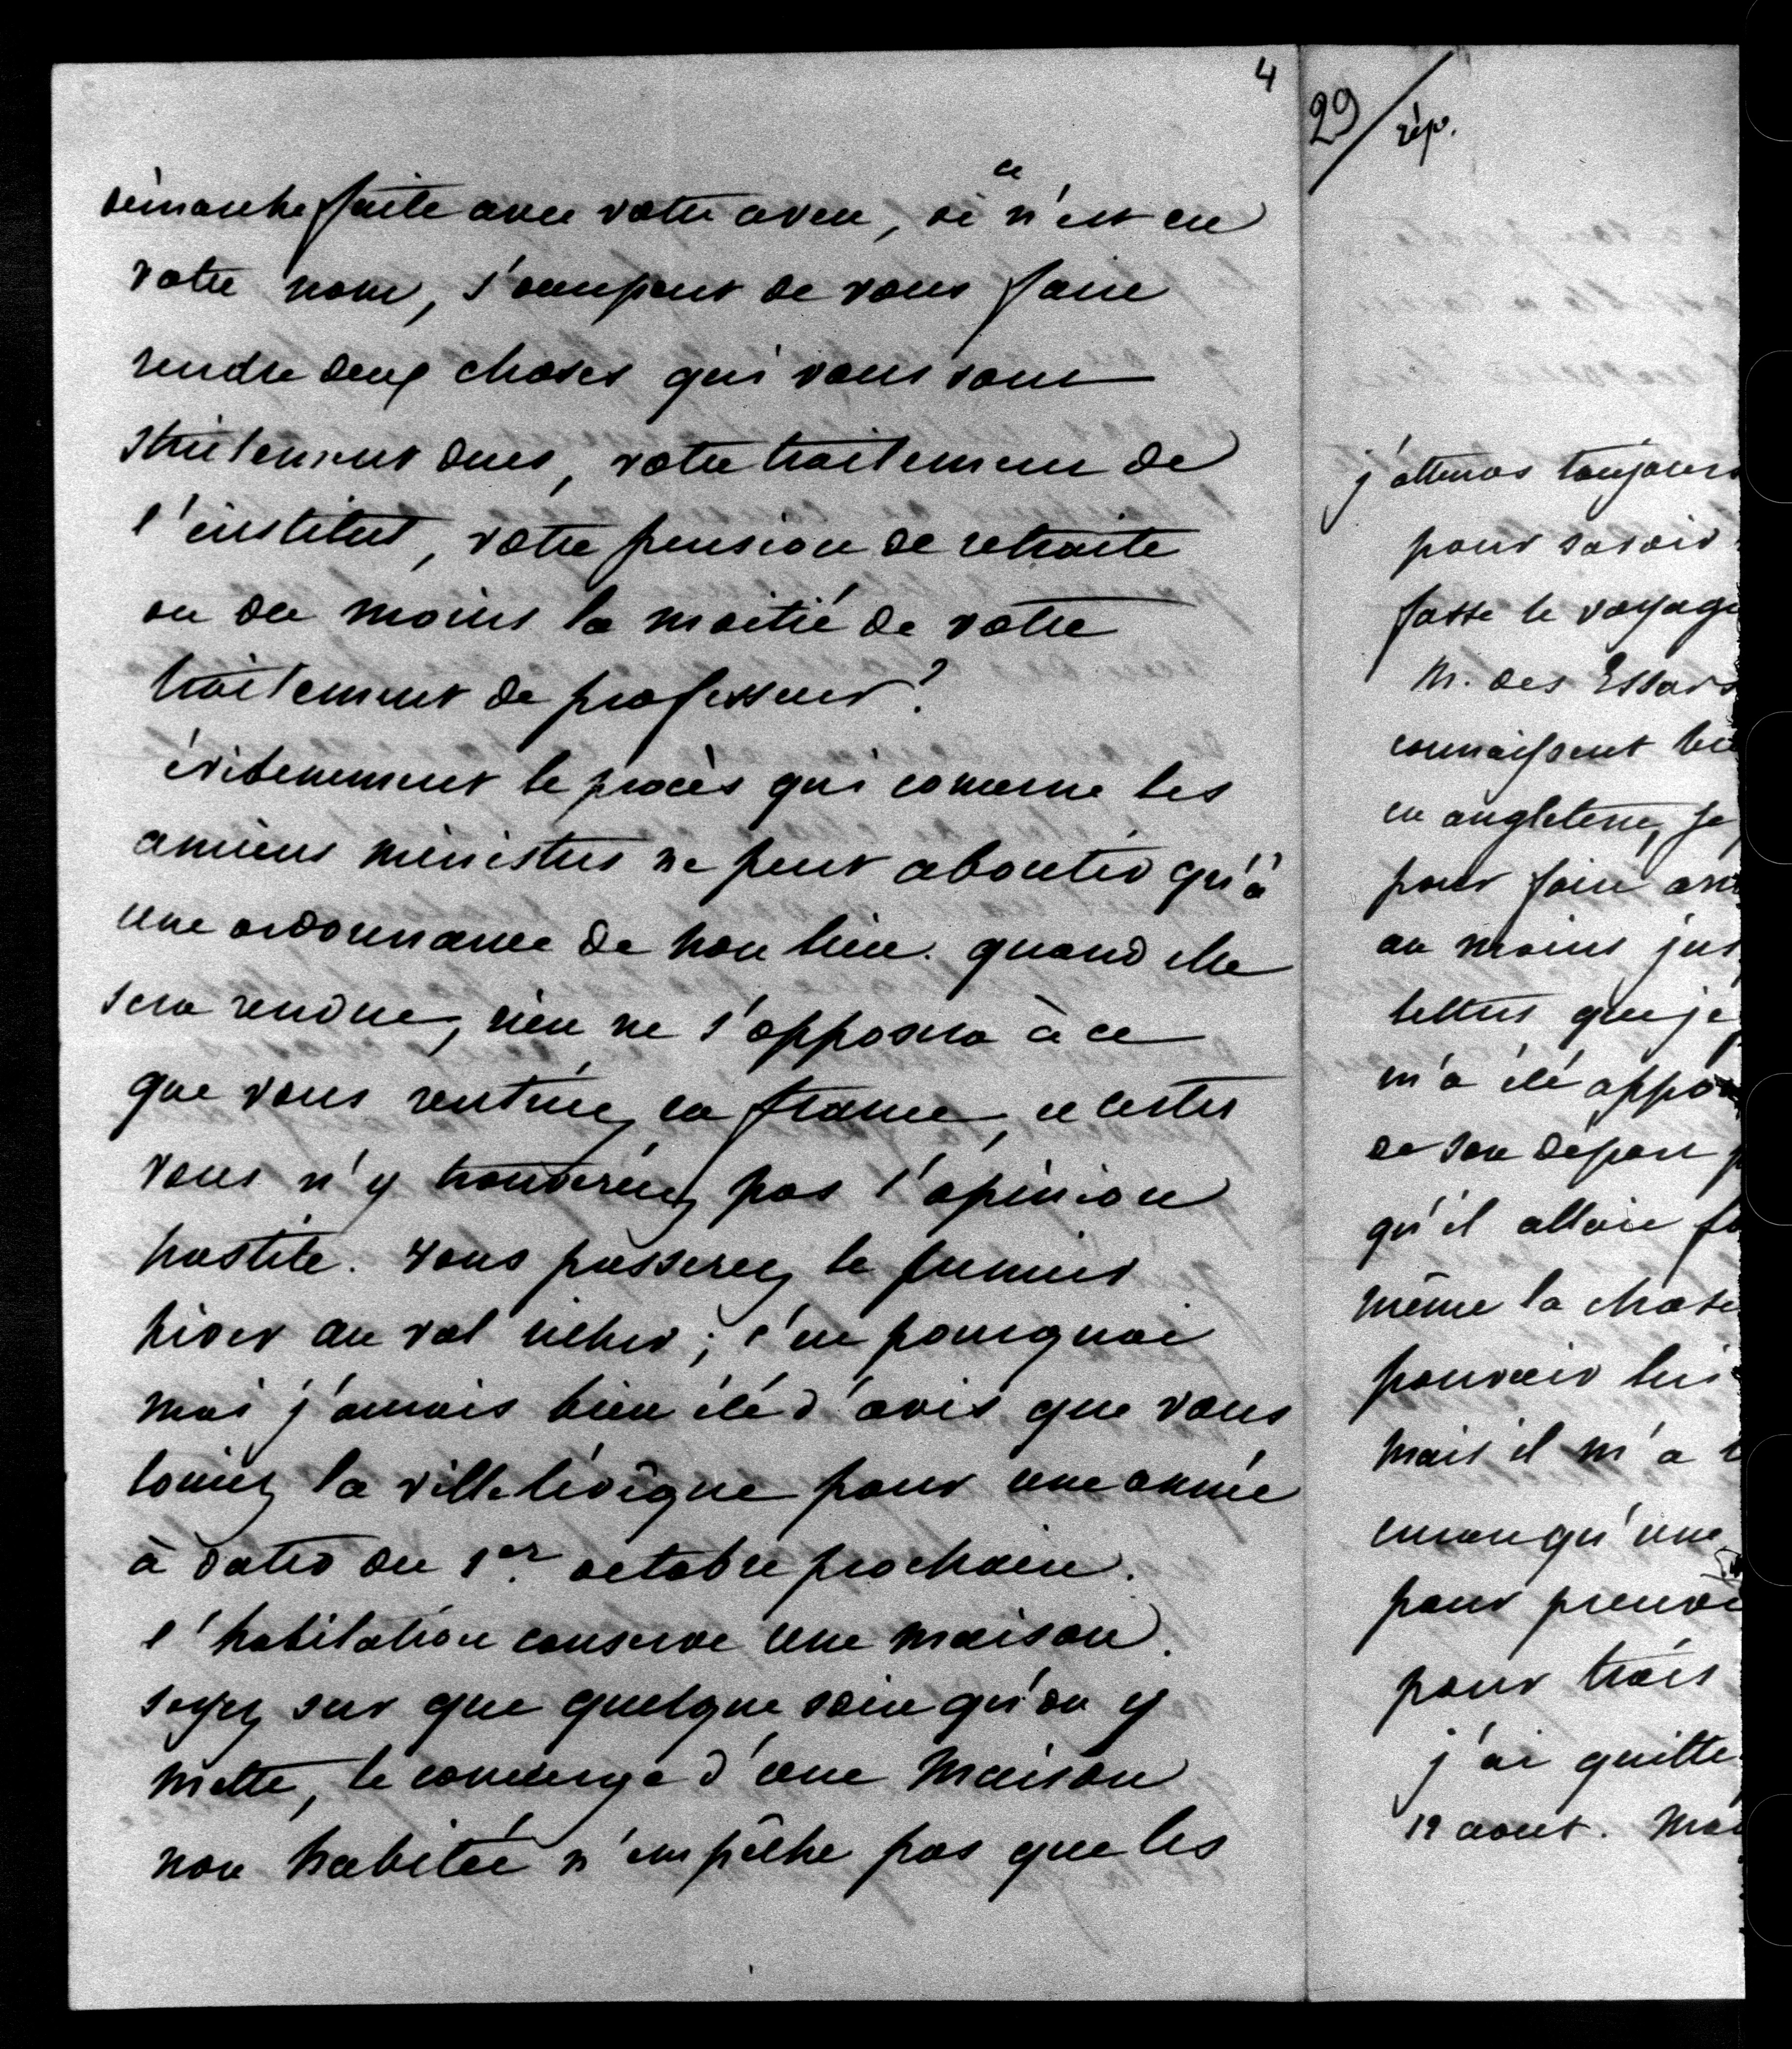 4
démarche faite avec votre aveu, si ce n'est en
votre nom, s'occupent de vous faire
rendre deux choses qui vous sont
strictement dues, votre traitement de
l'institut, votre pension de retraite
ou du moins la moitié de votre
traitement de professeur?
évidemment le procès qui concerne les
anciens ministres ne peut aboutir qu'à
une ordonnance de non lieu. quand elle
sera rendue, rien ne s'opposera à ce
que vous rentriez en france, et certes
vous n'y trouverez pas l'opinion
hostile. vous passerez le premier
hiver au val richer; c'est pourquoi
moi j'aurais bien été d'avis que vous
louiez la ville l'évêque pour une année
à dater du 1er octobre prochain.
l'habitation conserve une maison.
soyez sur que quelque soin qu'on y
mette, le concierge d'une maison
non habitée n'empêche pas que les
29/ rép.
j'attends toujours
pour savoir
fasse le voyage
M. des Essars
connaissent
en angleterre, je
pour faire
au moins jus
lettres que je
m'a été appo
de son départ
qu'il allait
même la chose
pouvoir lui
mais il m'a
qu'une
pour
pour trois
j'ai quitté
19 aout.